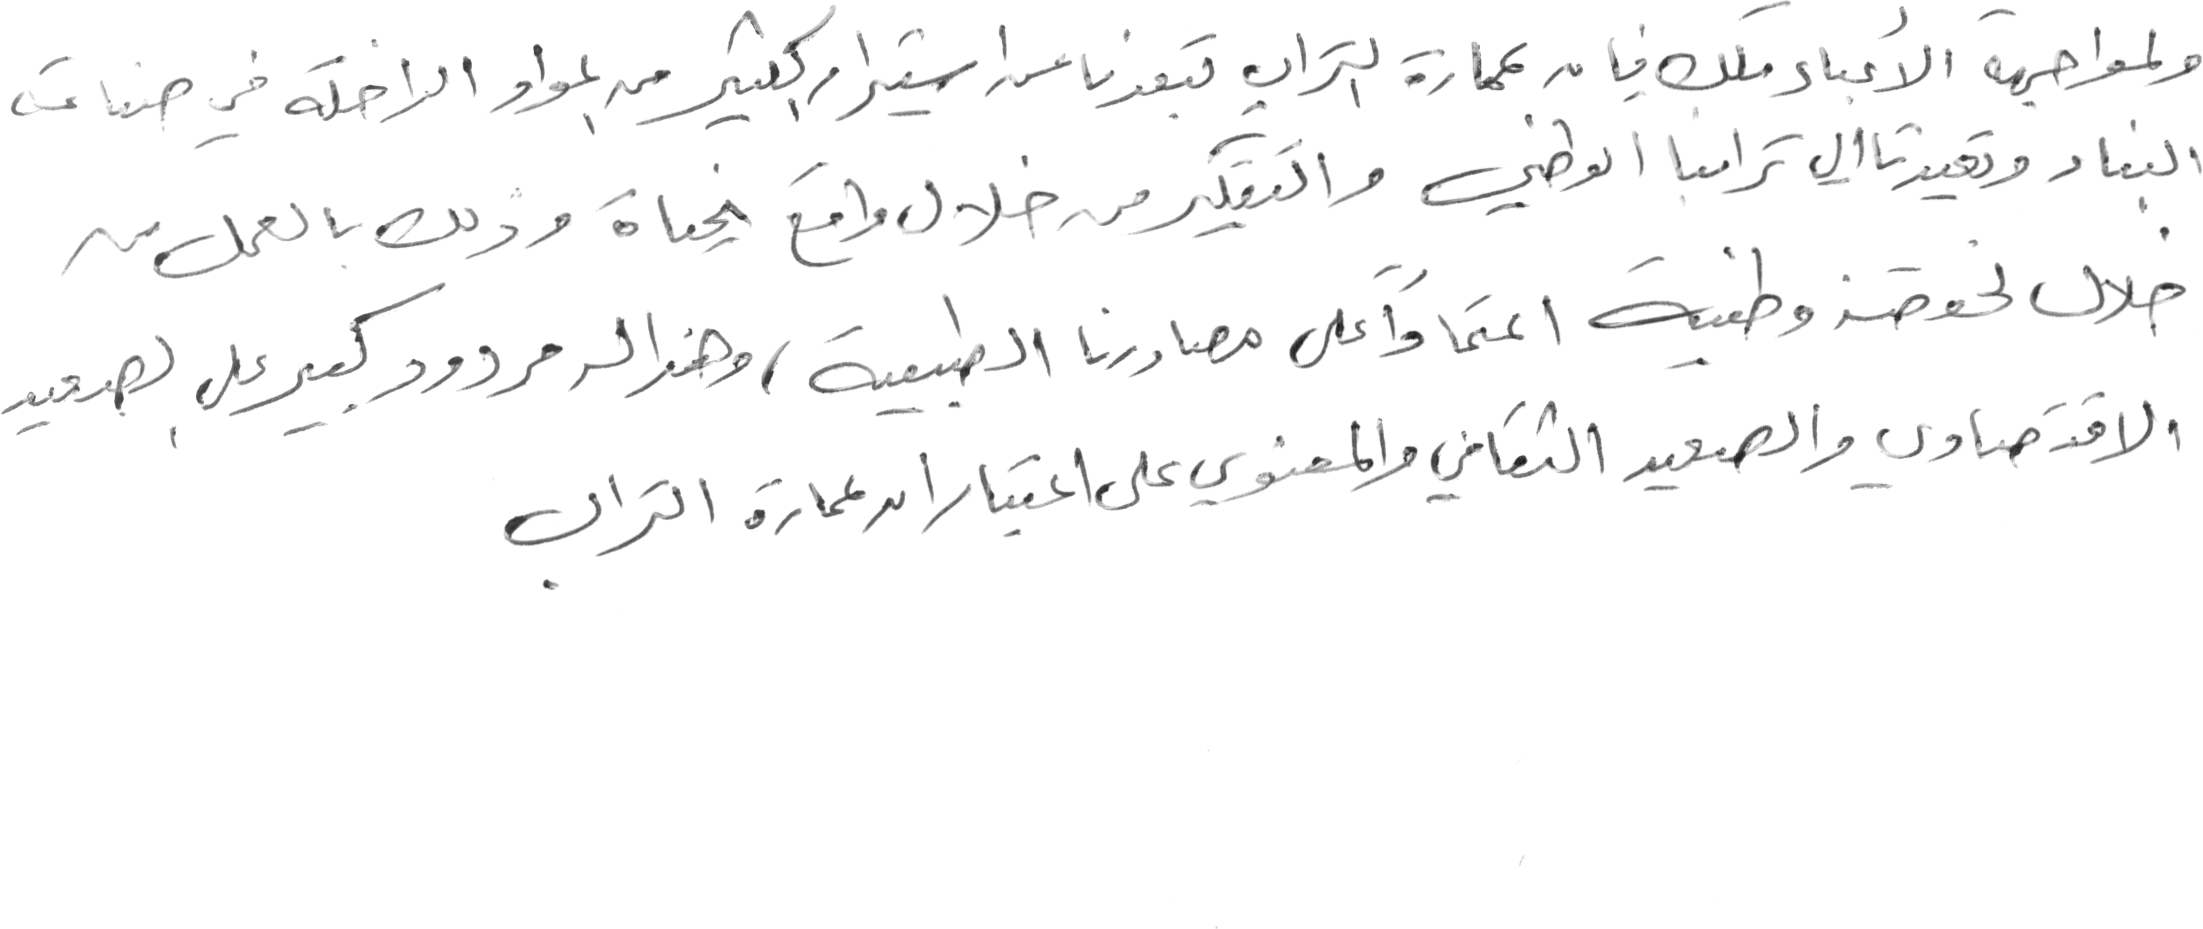 ولمواجهة الأعباء تلك فإن عمارة التراب تبعدنا عن استيراد الكثير من المواد الداخلة في صناعة
البناء وتعيدنا الى ترابنا الوطني والتفكير من خلال واقع الحياة وذلك بالعمل من
خلال نهضة وطنية اعتماداً على مصادرنا الطبيعية، وهذا له مردود كبير على الصعيد
الاقتصادي والصعيد الثقافي والمعنوي على اعتبار ان عمارة التراب